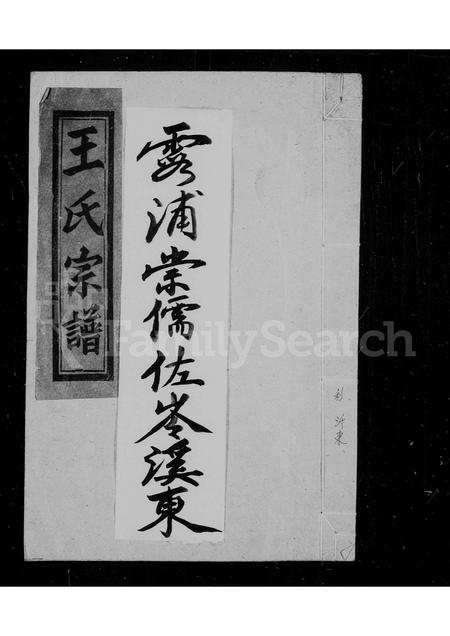 王氏宗譜
霞浦崇儒佐岑溪東
沂東
FamilySearch